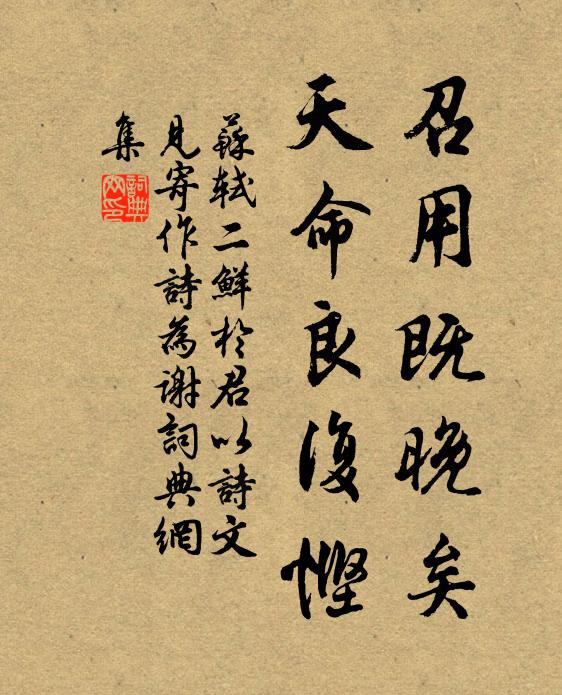 召用既晚矣
天命良復慳
蘇軾二鮮於君以詩文
見寄作詩為謝詞典網
集
詞典
网印